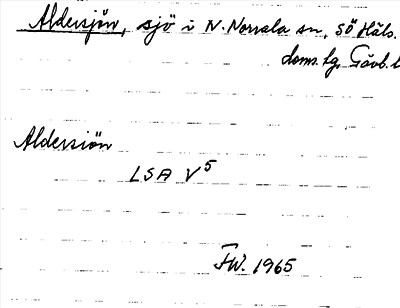 Aldersjön, sjö i N. Norrala sn, Sö Häls.
doms. hg, Gävb. l
Aldersiön
LSA V5
FW. 1965